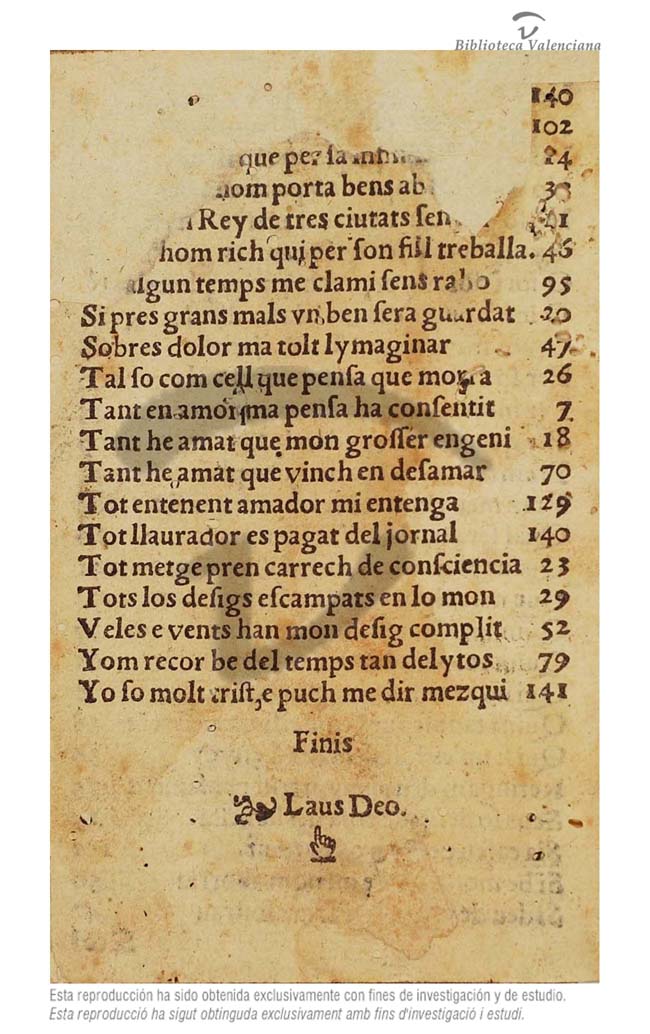 Biblioteca Valenciana
140
102
que per sa 24
hom porta bens ab
Rey de tres ciutats 21
hom rich qui per son fill treballa. 46
algun temps me clami sens raho 95
Si pres grans mals vn ben sera guardat 20
Sobres dolor ma tolt lymaginar 47
Tal so com cell que pensa que morra 26
Tant en amor ma pensa ha consentit 7
Tant he amat que mon grosser engeni 18
Tant he amat que vinch en desamar 70
Tot entenent amador mi entenga 129
Tot llaurador es pagat del jornal 140
Tot metge pren carrech de consciencia 23
Tots los desigs escampats en lo mon 29
Veles e vents han mon desig complit 52
Yom recor be del temps tan delytos 79
Yo so molt trist, e puch me dir mezqui 141
Finis
Laus Deo.
Esta reproducción ha sido obtenida exclusivamente con fines de investigación y de estudio.
Esta reproducció ha sigut obtinguda exclusivament amb fins d'investigació i estudi.